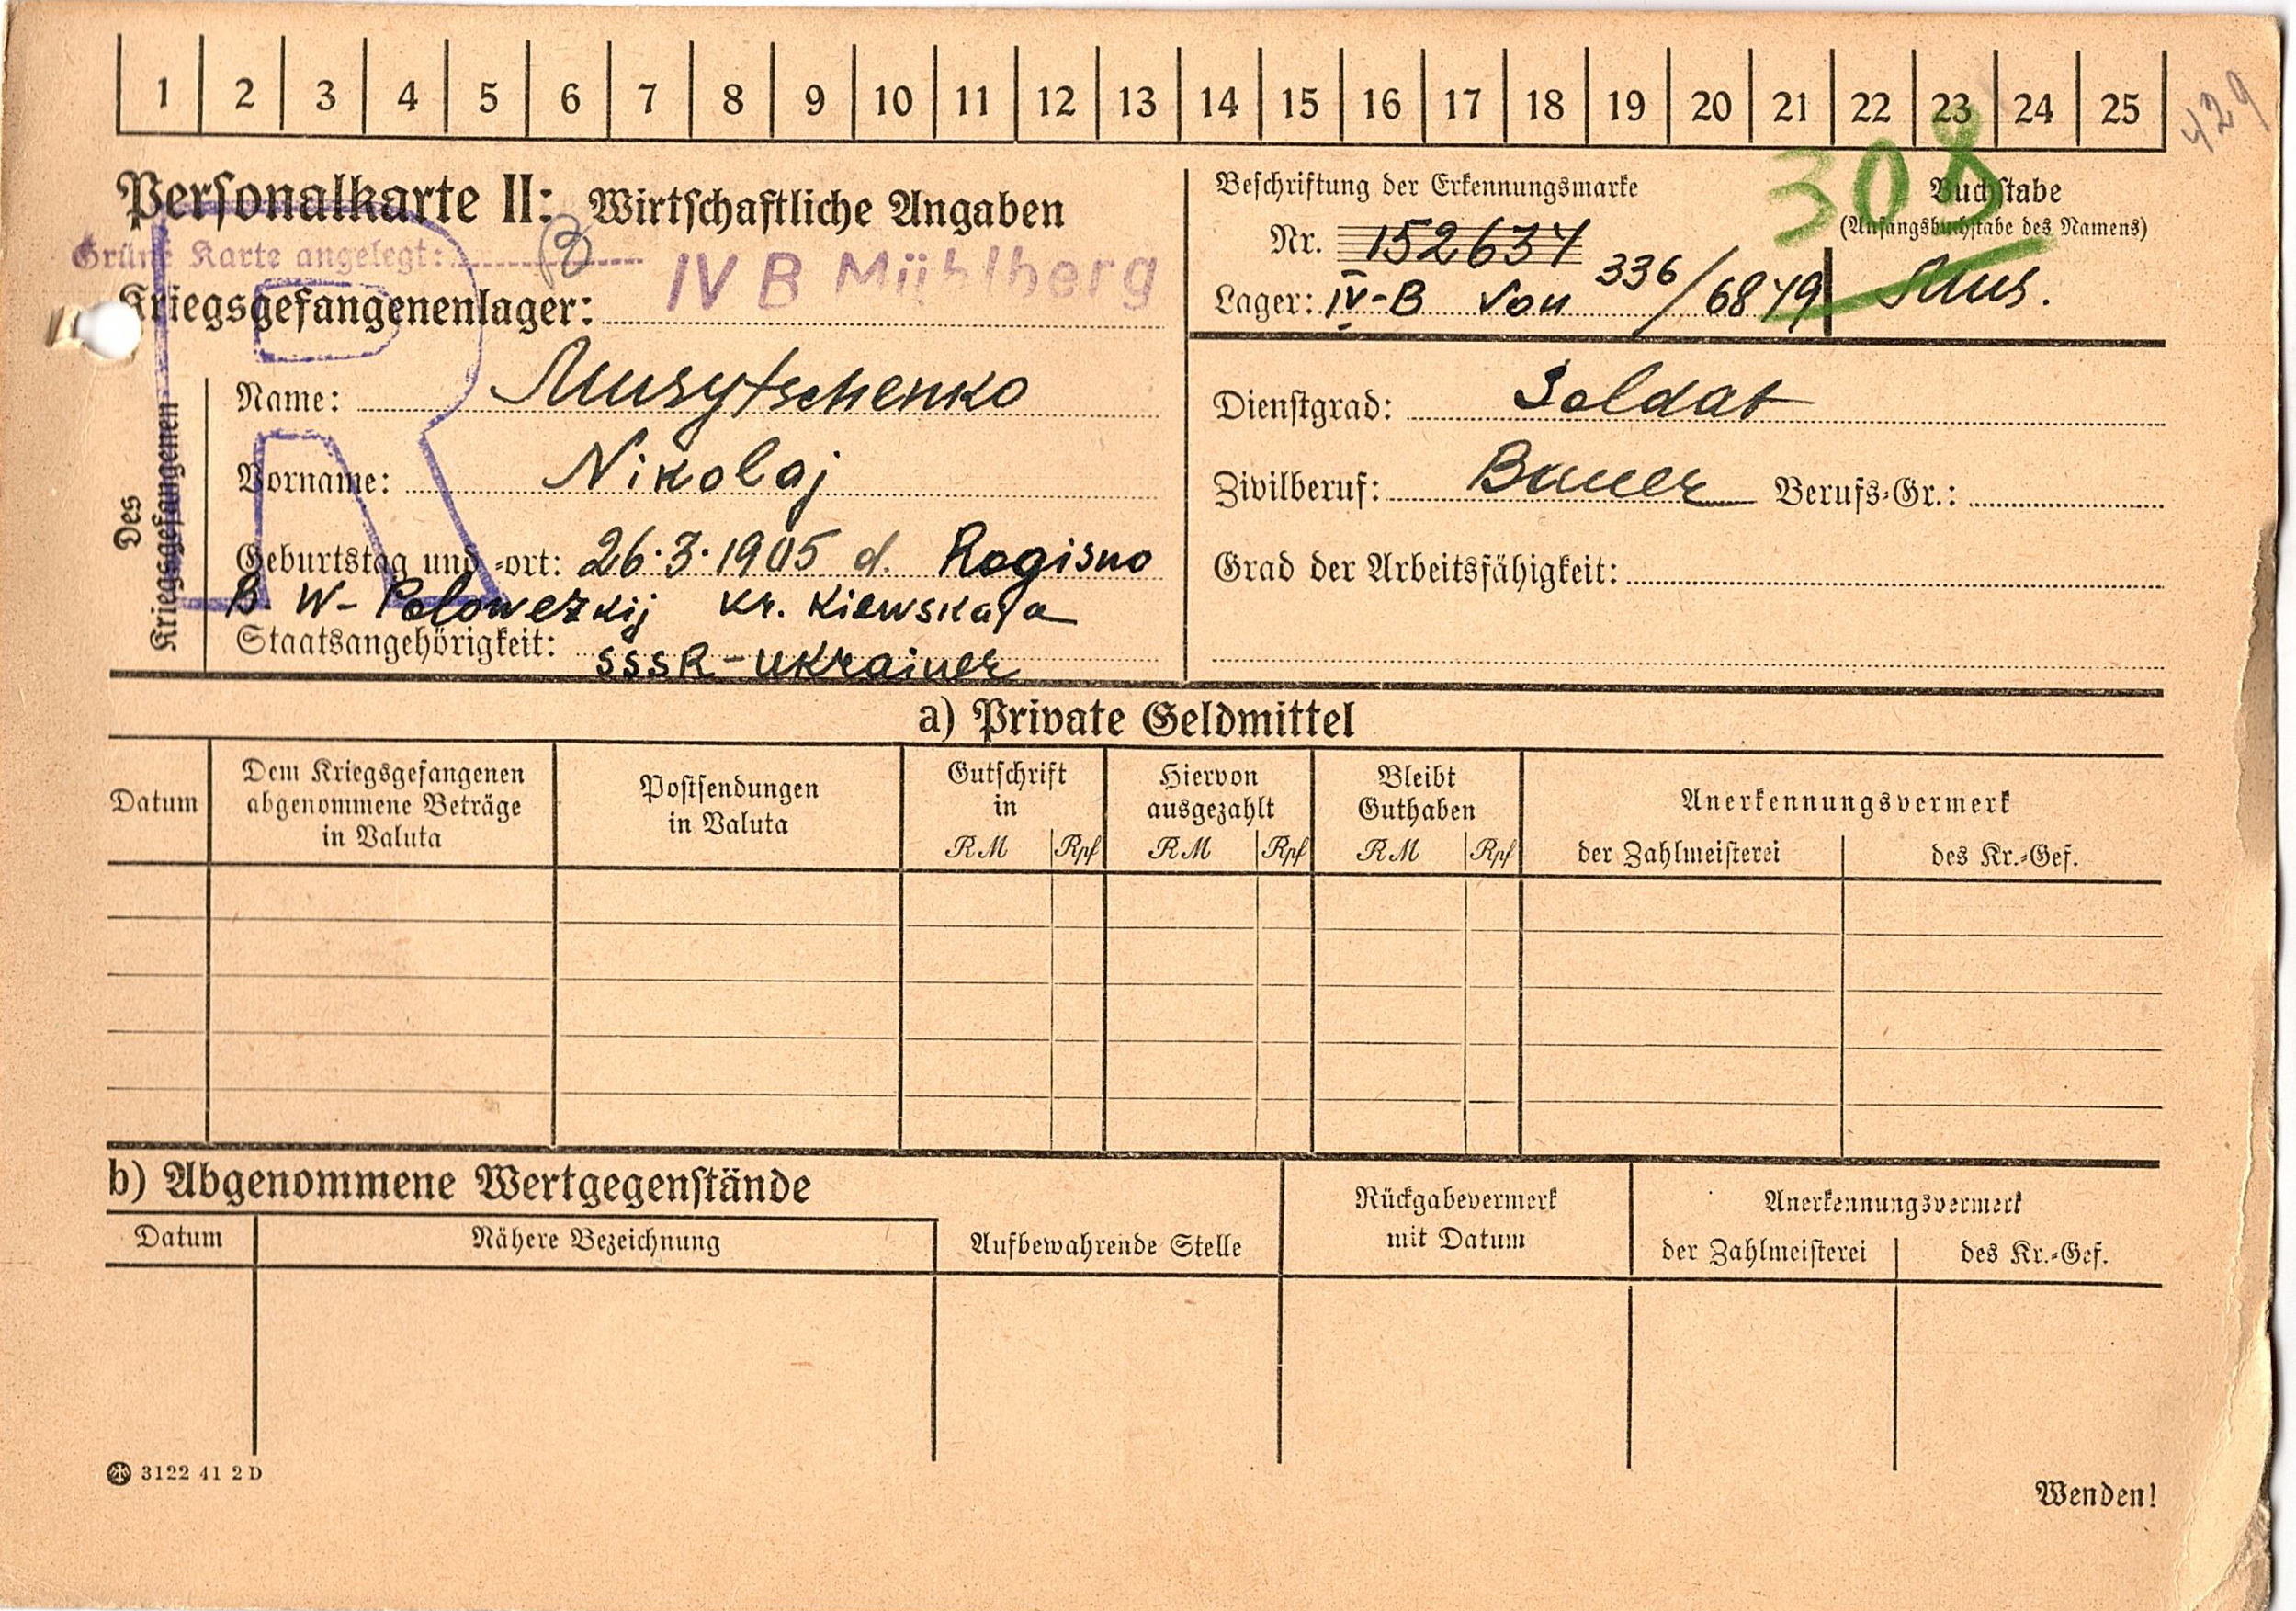 1 2 3 4 5 6 7 8 9 10 11 12 13 14 15 16 17 18 19 20 21 22 23 24 25
429
308
Personalkarte II: Wirtschaftliche Angaben
Grüne Karte angelegt:
Kriegsgefangenenlager: IV B Mühlberg
Beschriftung der Erkennungsmarke
Nr. 152634
Lager: IV-B von 336/6879
Buchstabe
(Anfangsbuchstabe des Namens)
Mus.
R
Des Kriegsgefangenen
Name: Musytschenko
Vorname: Nikolaj
Geburtstag und -ort: 26.3.1905 d. Rogisno
B. W- Polowezkij kr. Kiewskaja
Staatsangehörigkeit: SSSR - Ukrainer
Dienstgrad: Soldat
Zivilberuf: Bauer Berufs-Gr.:
Grad der Arbeitsfähigkeit:
a) Private Geldmittel
Datum
Dem Kriegsgefangenen
abgenommene Beträge
in Valuta
Postsendungen
in Valuta
Gutschrift
in
RM Rpf
Hiervon
ausgezahlt
RM Rpf
Bleibt
Guthaben
RM Rpf
Anerkennungsvermerk
der Zahlmeisterei des Kr.-Gef.
b) Abgenommene Wertgegenstände
Datum Nähere Bezeichnung
Aufbewahrende Stelle
Rückgabevermerk
mit Datum
Anerkennungsvermerk
der Zahlmeisterei des Kr.-Gef.
3122 41 2 D
Wenden!